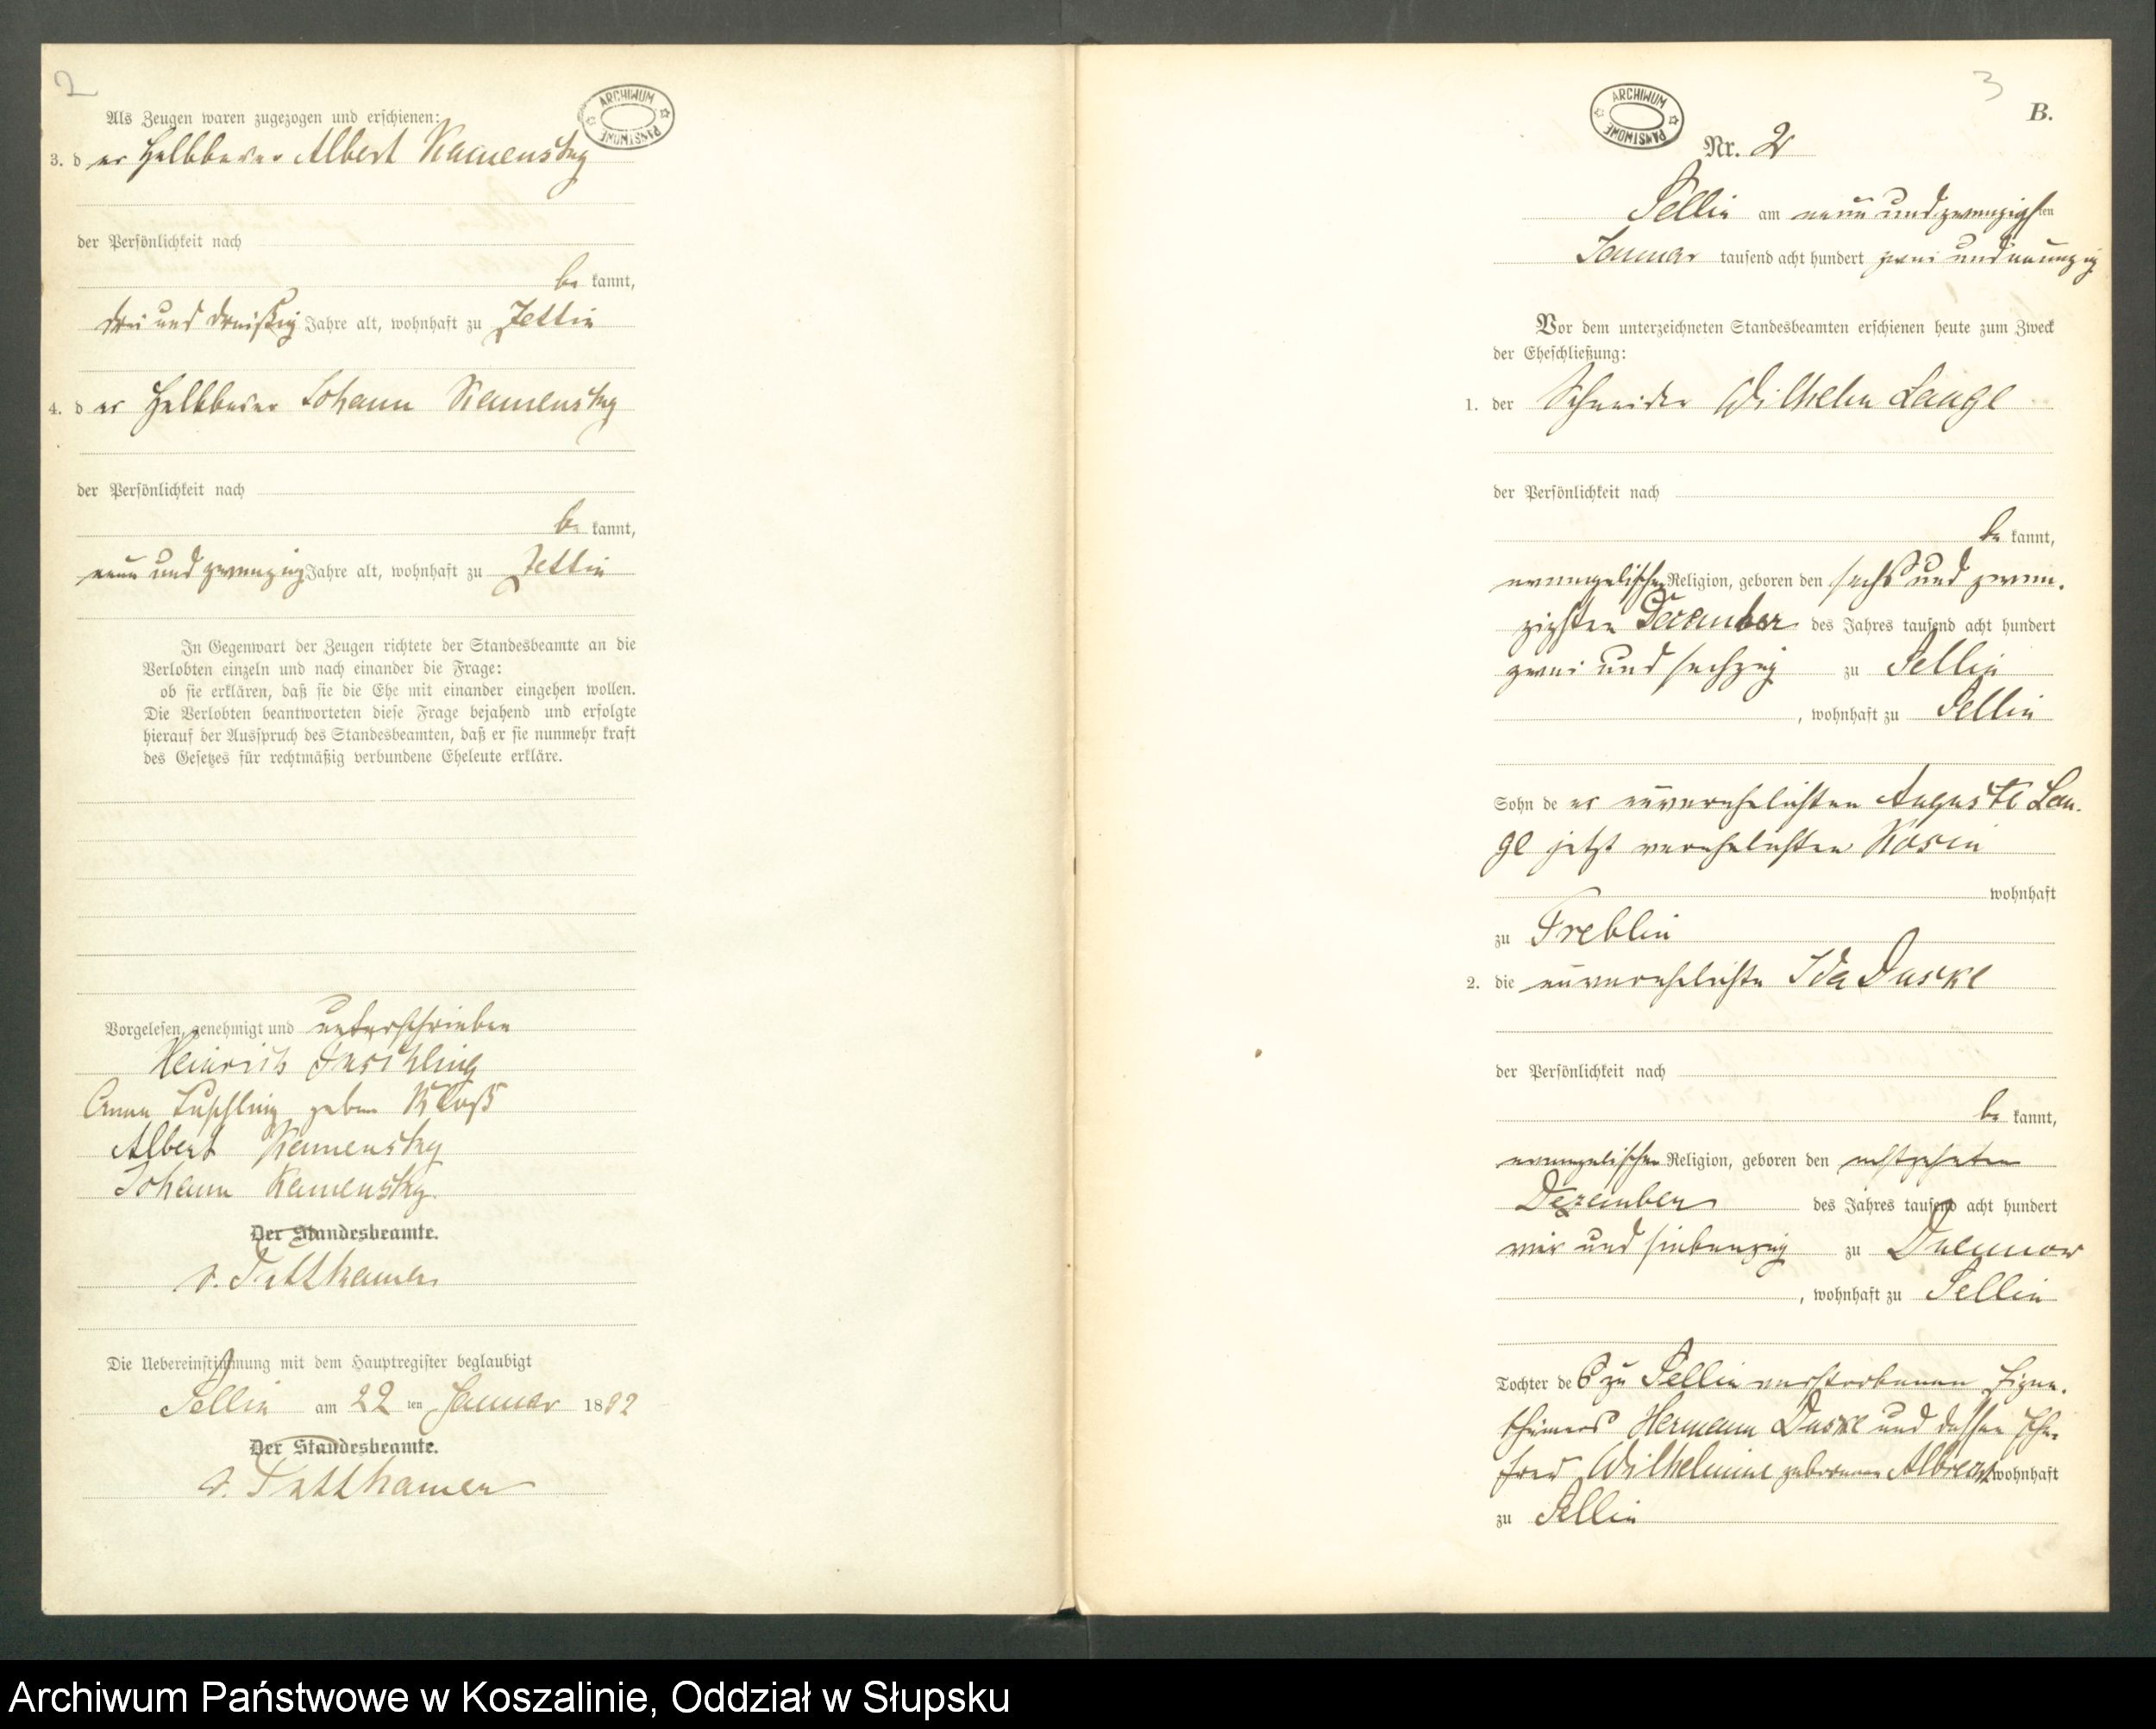 2
Als Zeugen waren zugezogen und erschienen:
3. d er Halbbauer Albert Kamensky
der Persönlichkeit nach
be kannt,
drei und dreißig Jahre alt, wohnhaft zu Zettin
4. d er Halbbauer Johann Kamensky
der Persönlichkeit nach
be kannt,
neun und zwanzig Jahre alt, wohnhaft zu Zettin
In Gegenwart der Zeugen richtete der Standesbeamte an die
Verlobten einzeln und nach einander die Frage:
ob sie erklären, daß sie die Ehe mit einander eingehen wollen.
Die Verlobten beantworteten diese Frage bejahend und erfolgte
hierauf der Ausspruch des Standesbeamten, daß er sie nunmehr kraft
des Gesetzes für rechtmäßig verbundene Eheleute erkläre.
Vorgelesen, genehmigt und unterschrieben
Heinrich
Anna geben Kloß
Albert Kamensky
Johann Kamensky.
Der Standesbeamte.
v. Puttkamer
Die Uebereinstimmung mit dem Hauptregister beglaubigt
Sellin am 22 ten Januar 1892
Der Standesbeamte.
v. Puttkamer
ARCHIWUM PAŃSTWOWE
3
B.
ARCHIWUM PAŃSTWOWE
Nr. 2
Sellin am neun und zwanzigsten
Januar tausend acht hundert zwei und neunzig
Vor dem unterzeichneten Standesbeamten erschienen heute zum Zweck
der Eheschließung:
1. der Schneider Wilhelm Lange
der Persönlichkeit nach
be kannt,
evangelischer Religion, geboren den sechs und zwan-
zigsten Dezember des Jahres tausend acht hundert
zwei und sechzig zu Sellin
, wohnhaft zu Sellin
Sohn de er unverehelichten Auguste Lan-
ge jetzt verehelichten Kosin
wohnhaft
zu Treblin
2. die unverehelichte Ida Duske
der Persönlichkeit nach
be kannt,
evangelischer Religion, geboren den achtzehnten
Dezember des Jahres tausend acht hundert
vier und siebenzig zu
, wohnhaft zu Sellin
Tochter de s zu Sellin verstorbenen Eigen-
thümers Hermann Duske und dessen Ehe-
frau Wilhelmine geborenen Albrecht wohnhaft
zu Sellin
Archiwum Państwowe w Koszalinie, Oddział w Słupsku